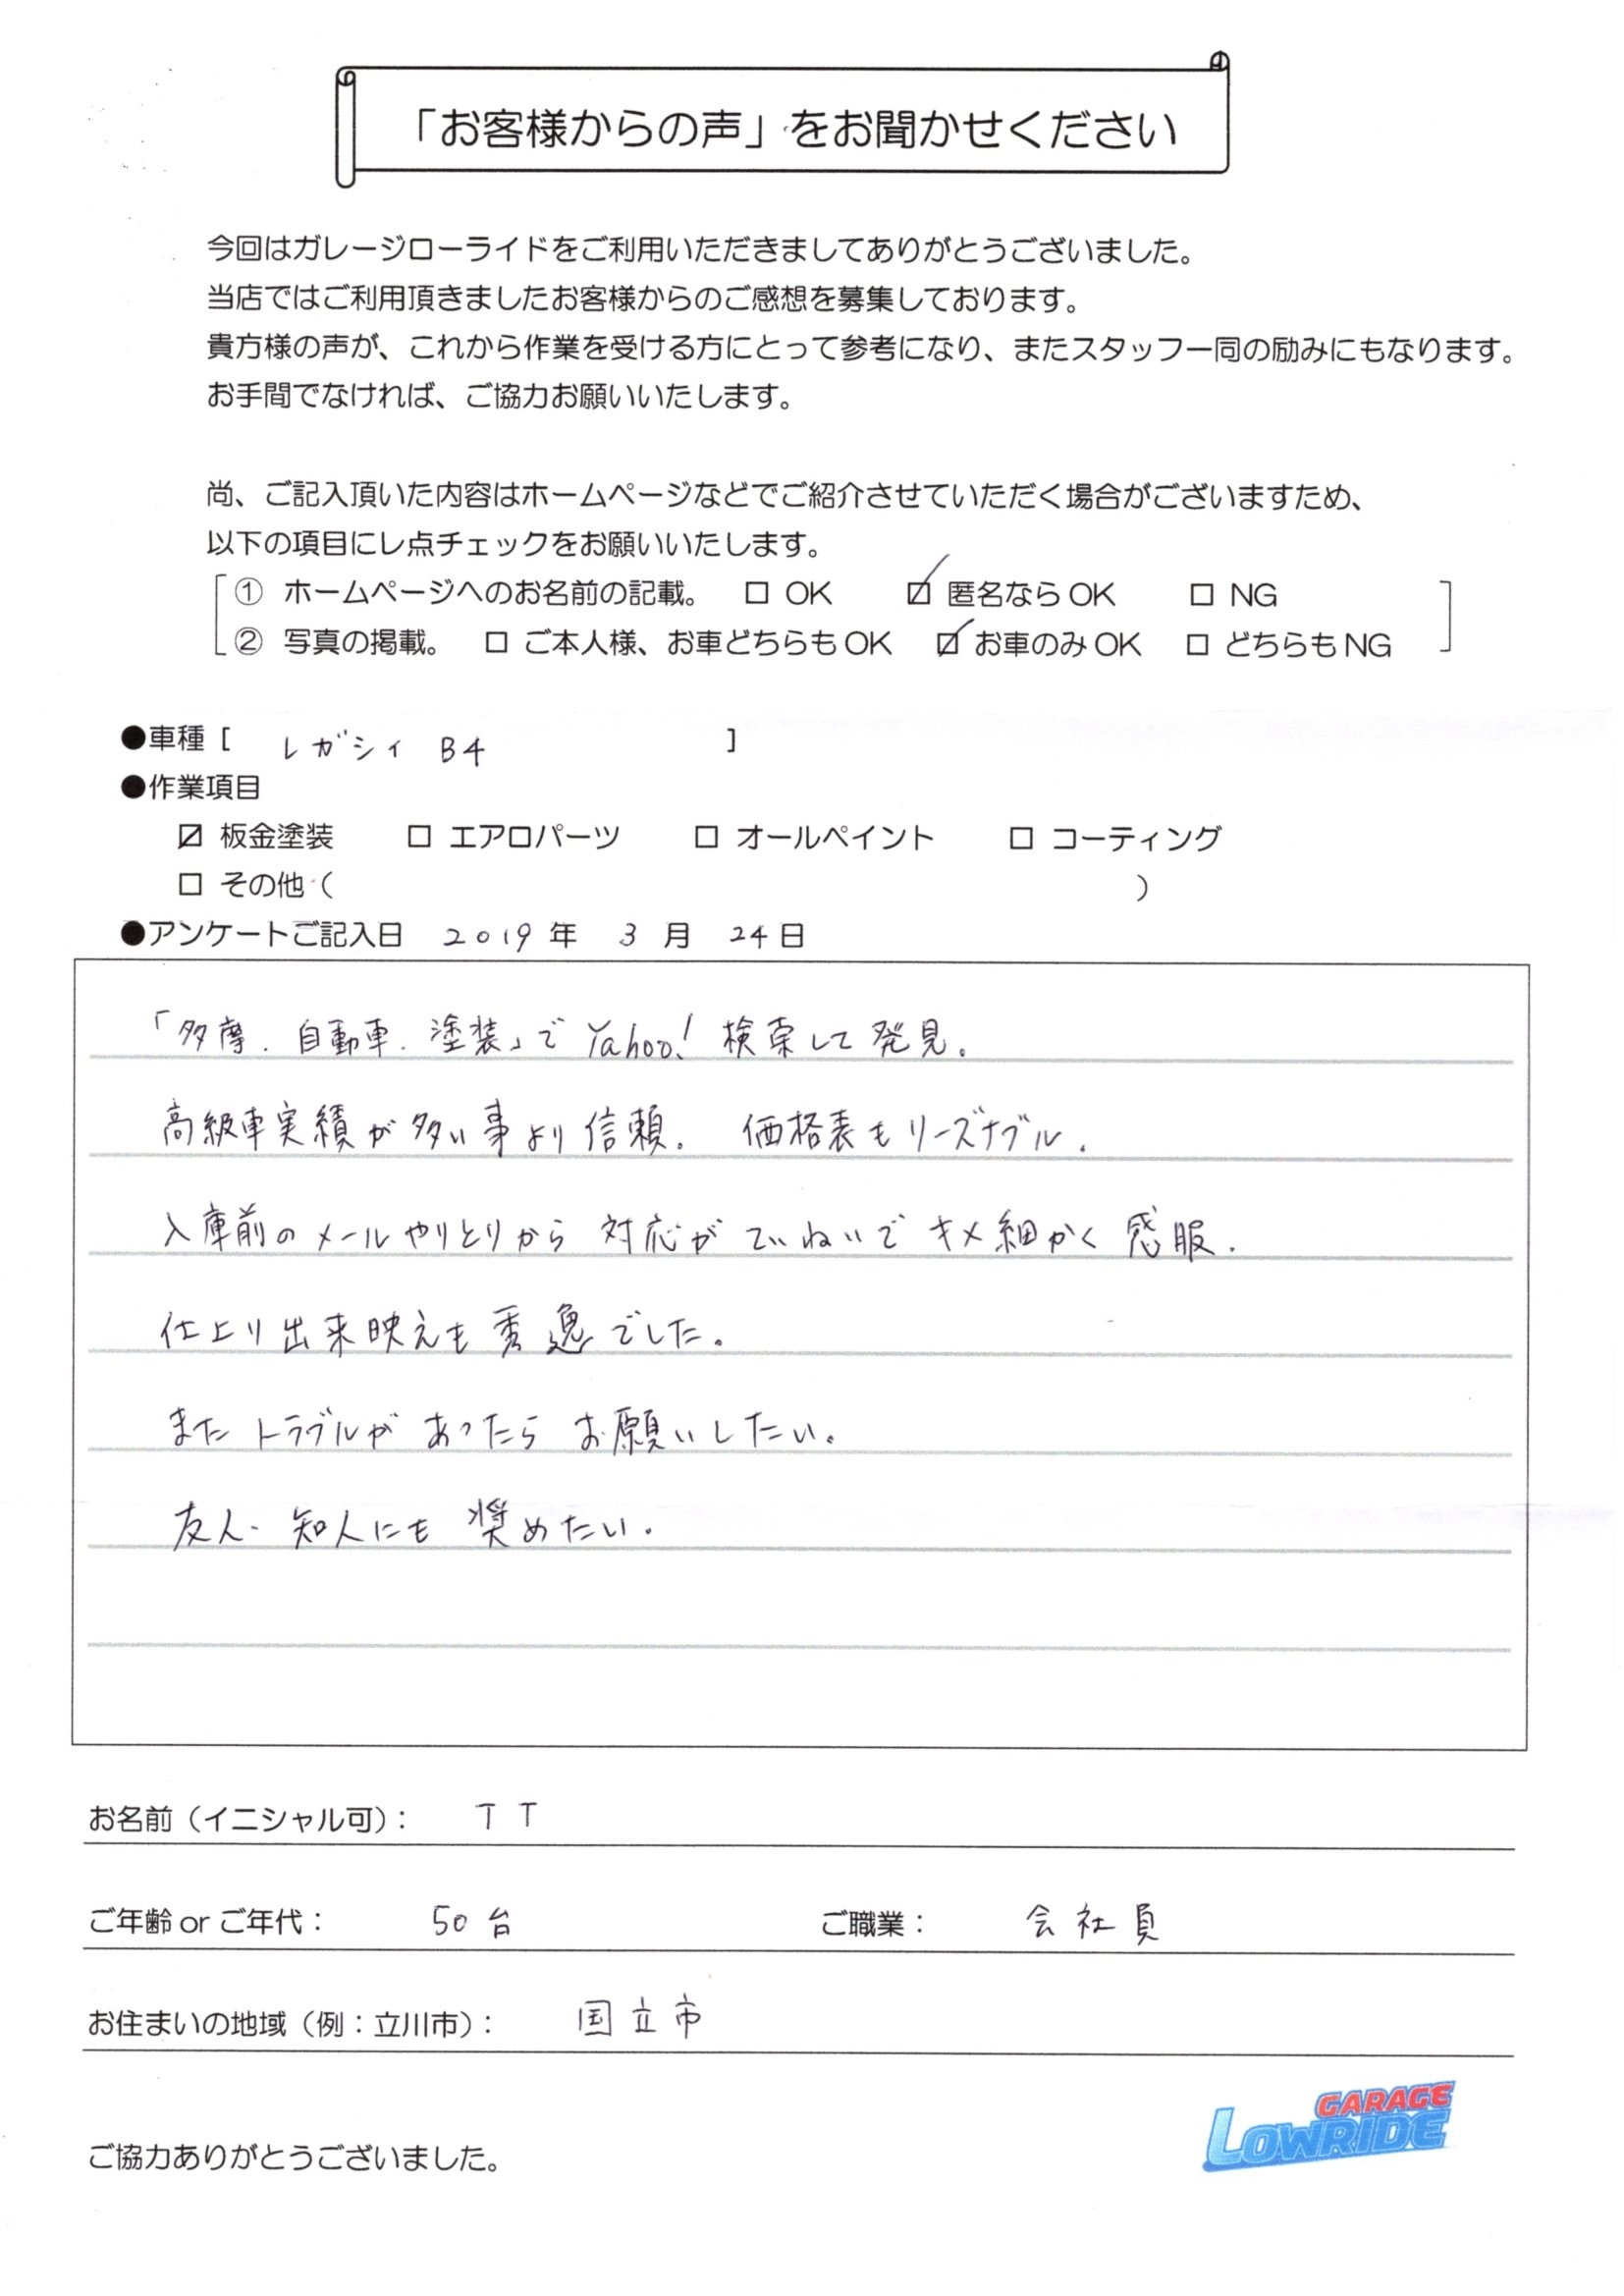 「お客様からの声」をお聞かせください
今回はガレージローライドをご利用いただきましてありがとうございました。
当店ではご利用頂きましたお客様からのご感想を募集しております。
貴方様の声が、これから作業を受ける方にとって参考になり、またスタッフ一同の励みにもなります。
お手間でなければ、ご協力お願いいたします。
尚、ご記入頂いた内容はホームページなどでご紹介させていただく場合がございますため、
以下の項目にレ点チェックをお願いいたします。
① ホームページへのお名前の記載。 □ OK ☑ 匿名なら OK □ NG
② 写真の掲載。 □ ご本人様、お車どちらも OK ☑ お車のみ OK □ どちらも NG
●車種 [ レガシィ B4 ]
●作業項目
☑ 板金塗装 □ エアロパーツ □ オールペイント □ コーティング
□ その他 ( )
●アンケートご記入日 2019 年 3 月 24 日
「多摩. 自動車. 塗装」で Yahoo! 検索して発見。
高級車実績が多い事より信頼。 価格表もリーズナブル.
入庫前のメールやりとりから 対応が ていねいで キメ細かく 感服.
仕上り出来映えも秀逸でした。
また トラブルが あったら お願いしたい。
友人・知人にも 奨めたい.
お名前（イニシャル可）： T T
ご年齢 or ご年代： 50台 ご職業： 会社員
お住まいの地域（例：立川市）： 国立市
GARAGE
LOWRIDE
ご協力ありがとうございました。